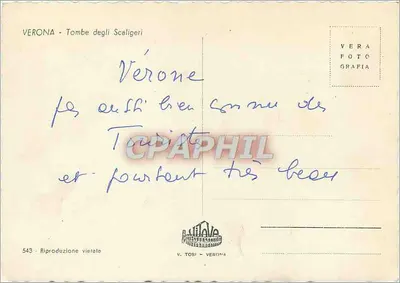 VERONA - Tombe degli Scaligeri
VERA
FOTO
GRAFIA
Vérone
pas aussi bien connu des
Touristes
CPAPHIL
et pourtant très beau
VITAVE
V. TOSI - VERONA
543 - Riproduzione vietata